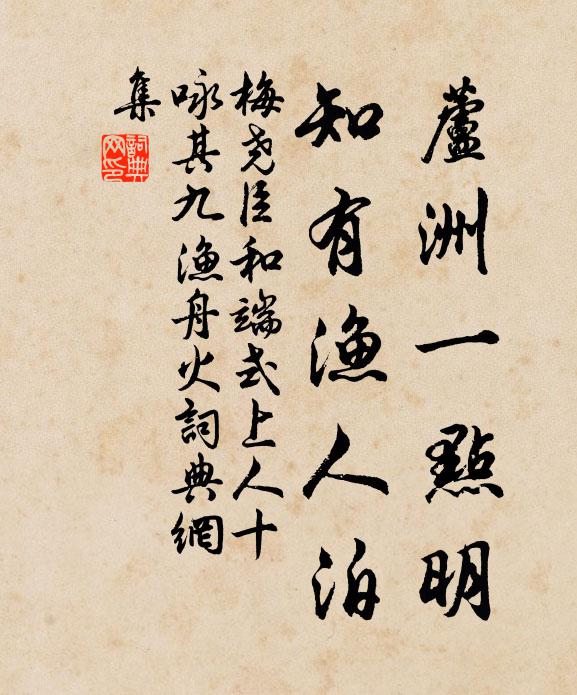 蘆洲一點明
知有漁人泊
梅堯臣和端式上人十
咏其九漁舟火詞典網
集
詞典
网印